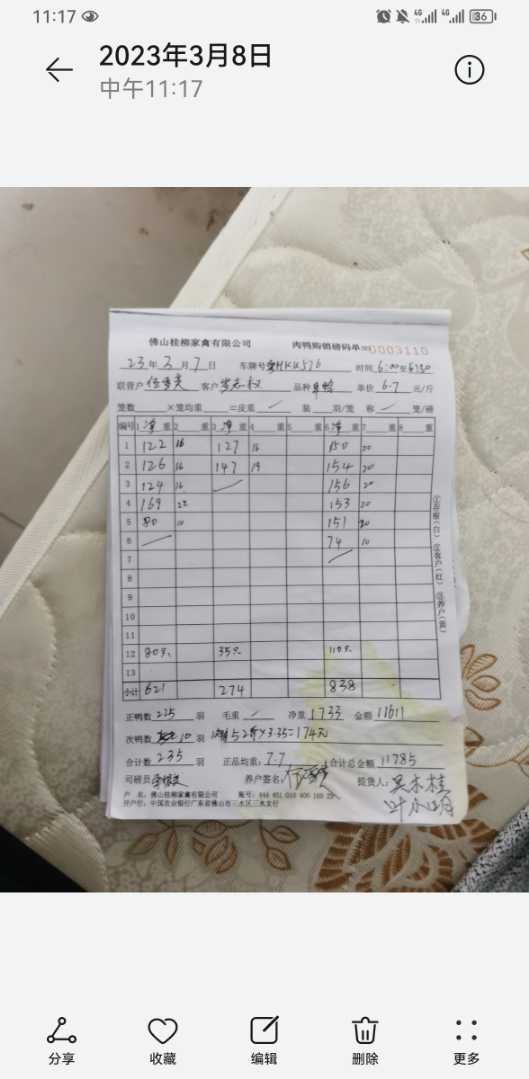 11:17
4G 4G 36
2023年3月8日
中午11:17
佛山桂柳家禽有限公司 肉鸭购销磅码单 0003110
23年3月7日 车牌号 HKU576 时间 6:00至6:30
联营户 客户 品种 单价 6.7 元/斤
笼数 ×笼均重 =皮重 装 羽/笼 称 笼/磅
编号 1 净 重 2 重 3 净 重 4 重 5 重 6 净 重 7 重 8 重
1 122 16 127 16 150 20
2 126 16 147 19 154 20
3 124 16 156 20
4 169 22 153 20
5 80 10 151 20
6 74 10
7
8
9
10
11
12 80只 35只 110只
13
小计 621 274 838
①存根(白) ②客户(红) ③养户(黄)
正鸭数 225 羽 毛重 净重 1733 金额 11611
次鸭数 10 羽 52斤×3.35=174元
合计数 235 羽 正品均重 7.7 合计总金额 11785
司磅员 养户签名: 提货人: 吴木桂
叶小明
户 名: 佛山桂柳家禽有限公司 账号:
开户行: 中国农业银行广东省佛山市三水区三水支行
分享 收藏 编辑 删除 更多